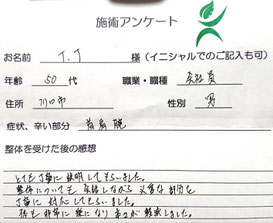 施術アンケート
お名前 T.T 様(イニシャルでのご記入も可)
年齢 50 代 職業・職種 会社員
住所 川口市 性別 男
症状、辛い部分 首肩腕
整体を受けた後の感想
とても丁寧に説明してもらいました。
整体についても 会話しながら 必要な部分を
丁寧に対応してもらいました。
体も非常に楽になり 辛さが軽減しました。